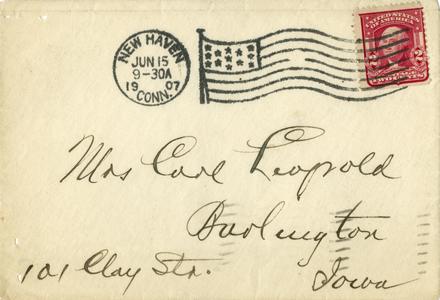 NEW HAVEN
JUN 15
9-30A
1907
CONN.
UNITED STATES
OF AMERICA
2 2
TWO CENTS
Mrs Carl Leopold
Burlington
101 Clay Str.
Iowa